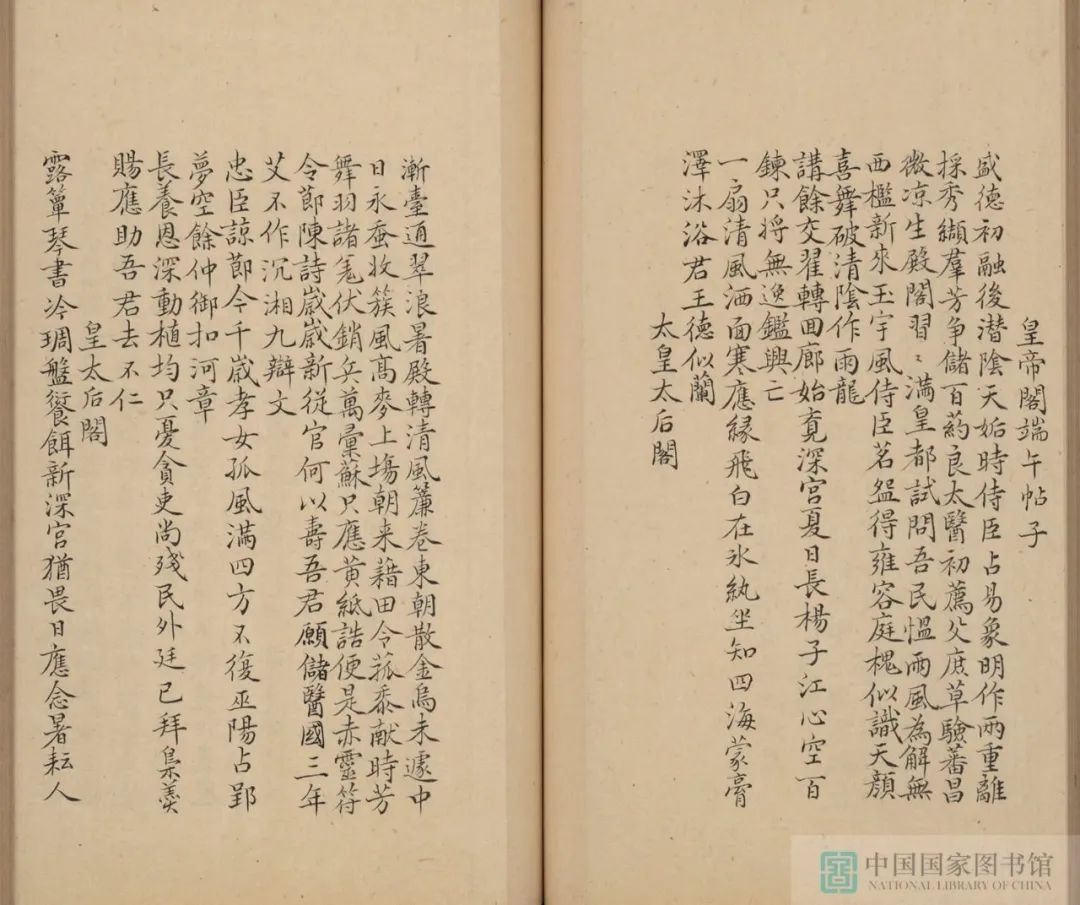 皇帝閣端午帖子
盛德初融後潜陰天姤時侍臣占易象明作兩重離
採秀擷羣芳争儲百葯良太醫初薦父庶草驗蕃昌
微凉生殿閣習〻滿皇都試問吾民愠雨風為解無
西檻新來玉宇風侍臣茗盌得雍容庭槐似識天顔
喜舞破清陰作雨龍
講餘交翟轉回廊始覔深宫夏日長楊子江心空百
鍊只将無逸鑑興亡
一扇清風洒面寒應縁飛白在氷紈坐知四海蒙膏
澤沐浴君王德似蘭
太皇太后閣
漸臺通翠浪暑殿轉清風簾卷東朝散金烏未遽中
日永蚕收簇風髙麥上塲朝来藉田令菰黍献時芳
舞羽諸羌伏銷兵萬彙蘇只應黄紙誥便是赤靈符
令節陳詩歳歳新從官何以壽吾君願儲醫國三年
艾不作沉湘九辯文
忠臣諒節今千歳孝女孤風滿四方不復巫陽占郢
夢空餘仲御扣河章
長養恩深動植均只憂貪吏尚殘民外廷已拜梟羹
賜應助吾君去不仁
皇太后閣
露簟琴書冷琱盤餐餌新深宫猶畏日應念暑耘人
中国国家图书馆
NATIONAL LIBRARY OF CHINA